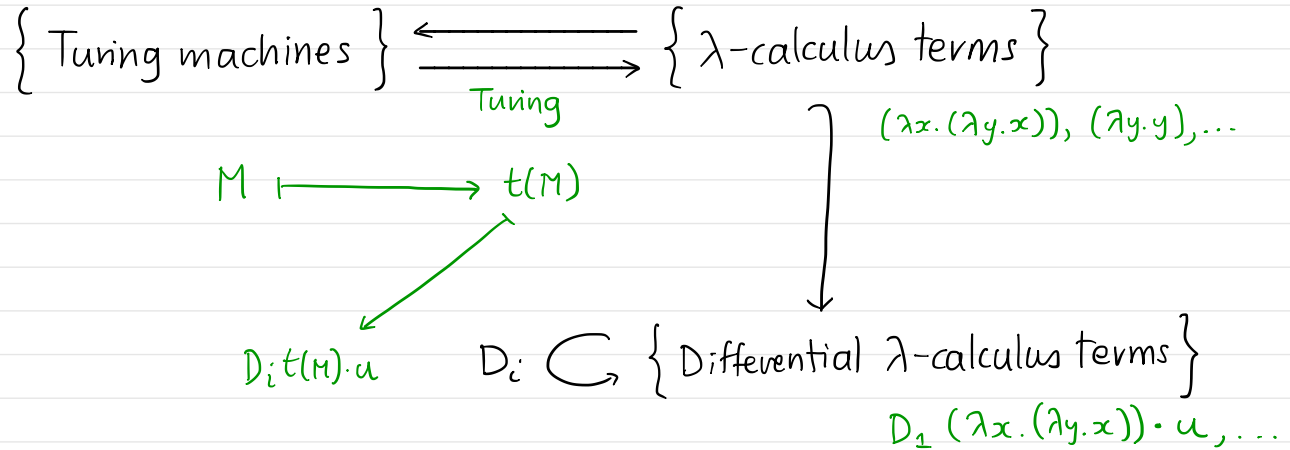 { Turing machines } ⟵ ⟶ { λ-calculus terms }
Turing
(λx.(λy.x)), (λy.y),...
M ⟼ t(M)
Dᵢt(M)·u
Dᵢ { Differential λ-calculus terms }
D₁ (λx.(λy.x))·u,...